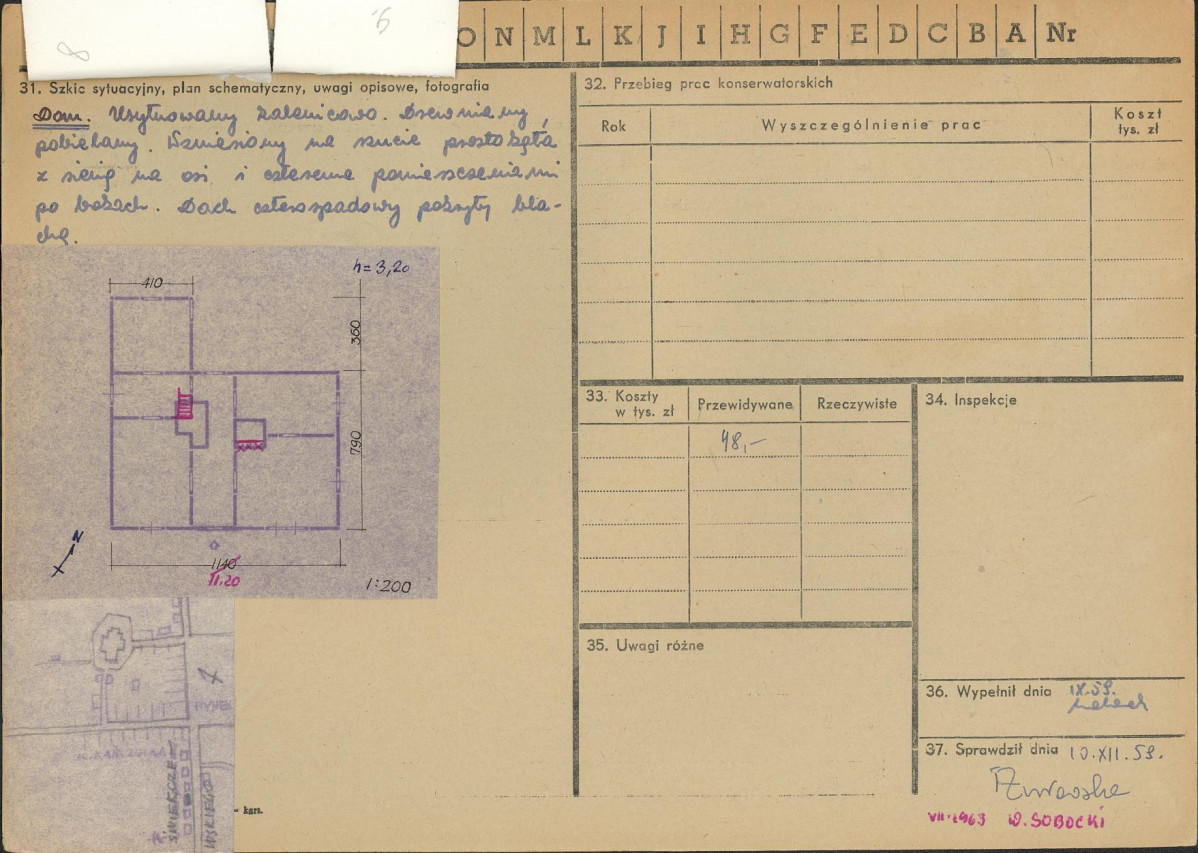 8
9.
O N M L K J I H G F E D C B A Nr
31. Szkic sytuacyjny, plan schematyczny, uwagi opisowe, fotografia
Dom. Usytuowany kalenicowo. Drewniany,
pobielany. Wzniesiony na rzucie prostokąta
z sienią na osi i czterema pomieszczeniami
po bokach. Dach czterospadowy pokryty bla-
chą.
h=3,20
410
360
790
N
1140
11.20
1:200
RYNEK
ŚWIERCZE
WSKIEGO
- kars.
32. Przebieg prac konserwatorskich
Rok
Wyszczególnienie prac
Koszt
tys. zł
33. Koszty
w tys. zł
Przewidywane
Rzeczywiste
48,-
34. Inspekcje
35. Uwagi różne
36. Wypełnił dnia IX.59.
37. Sprawdził dnia 10.XII.59.
VII.1963 W. SOBOCKI